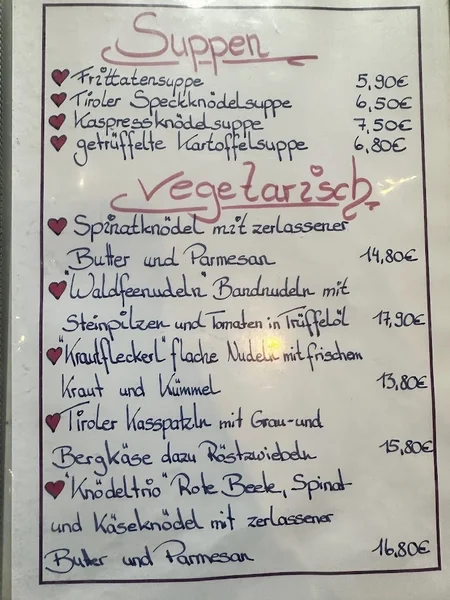 Suppen
Frittatensuppe 5,90€
Tiroler Speckknödelsuppe 6,50€
Kaspressknödelsuppe 7,50€
getrüffelte Kartoffelsuppe 6,80€
vegetarisch
Spinatknödel mit zerlassener
Butter und Parmesan 14,80€
"Waldfeenudeln" Bandnudeln mit
Steinpilzen und Tomaten in Trüffelöl 17,90€
"Krautfleckerl" flache Nudeln mit frischem
Kraut und Kümmel 13,80€
Tiroler Kasspatzln mit Grau-und
Bergkäse dazu Röstzwiebeln 15,80€
"Knödeltrio" Rote Beete, Spinat-
und Käseknödel mit zerlassener
Butter und Parmesan 16,80€